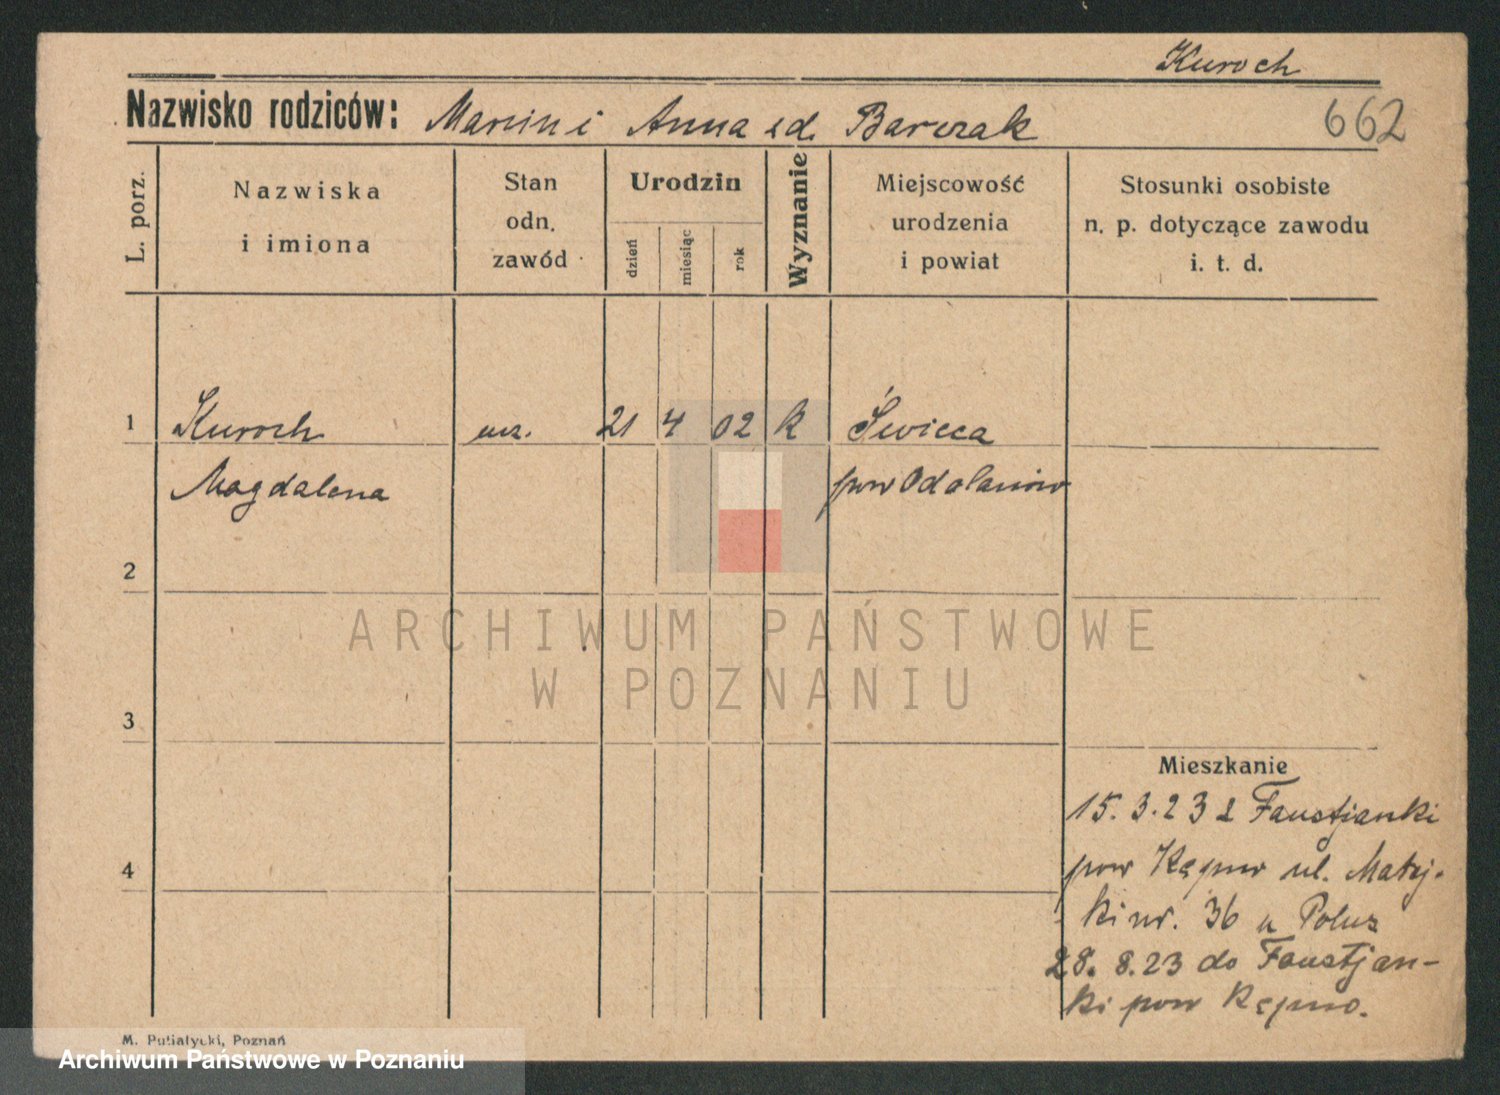 Kuroch
Nazwisko rodziców: Marcin i Anna zd. Barczak 662
L. porz.
Nazwiska
i imiona
Stan
odn.
zawód
Urodzin
dzień
miesiąc
rok
Wyznanie
Miejscowość
urodzenia
i powiat
Stosunki osobiste
n. p. dotyczące zawodu
i. t. d.
1 Kuroch 21 4 02 k Świeca
Magdalena pow Odolanów
2
ARCHIWUM PAŃSTWOWE
W POZNANIU
3
Mieszkanie
15.3.23 z Faustjanki
4
pow Kępno ul. Matej-
ki nr. 36 u Polus
28.8.23 do Faustjan-
ki pow Kępno.
M. Putiatycki, Poznań
Archiwum Państwowe w Poznaniu